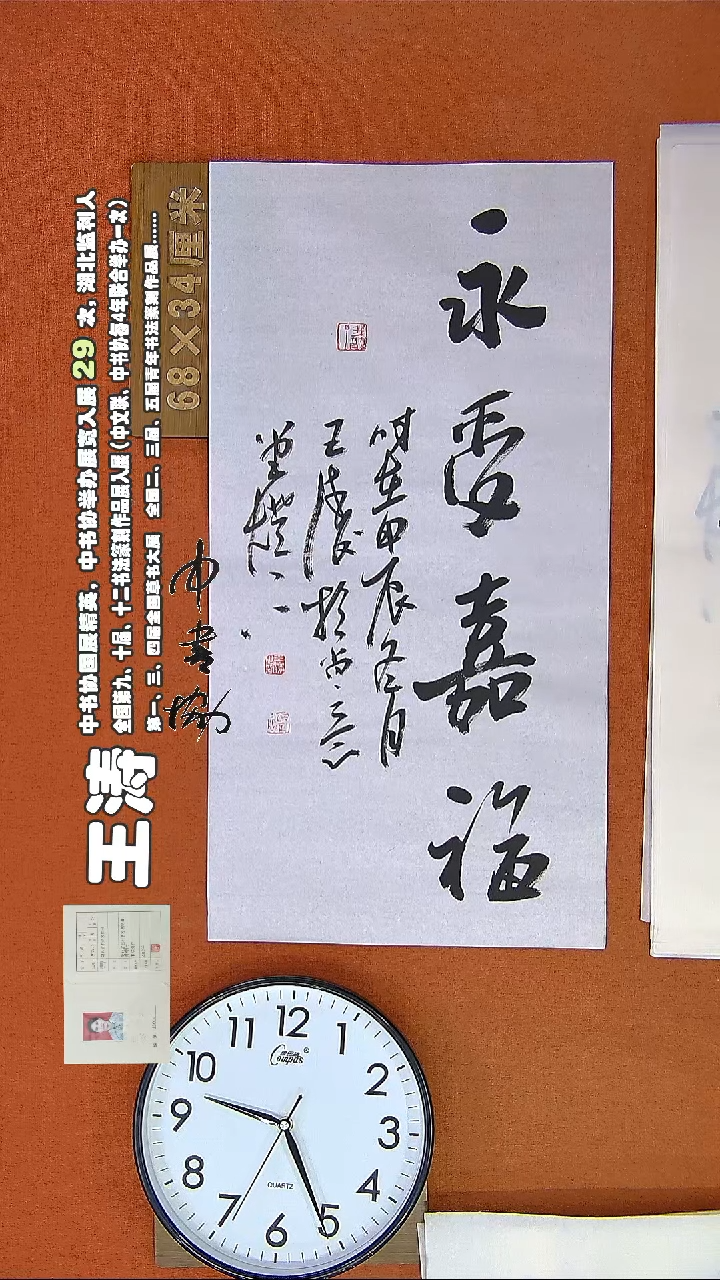 永受嘉福
时在甲辰冬月
王涛书于尚三
堂灯下
68×34厘米
中书协
中书协国展精英，中书协举办展览入展 29 次，湖北监利人
全国第九、十届、十二书法篆刻作品展入展（中文联、中书协每4年联合举办一次）
第一、三、四届全国草书大展 全国二、三届、五届青年书法篆刻作品展......
王涛
12
1
2
3
4
5
6
7
8
9
10
11
QUARTZ